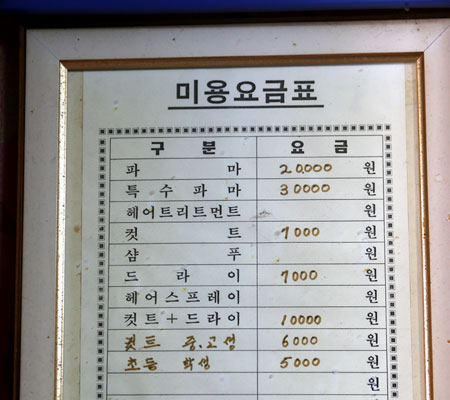 미용요금표
구 분 요 금
파 마 20,000 원
특수파마 30000 원
헤어트리트먼트 원
컷 트 7000 원
샴 푸 원
드 라 이 7000 원
헤어스프레이 원
컷트+드라이 10000 원
컷트 중.고생 6000 원
초등 학생 5000 원
원